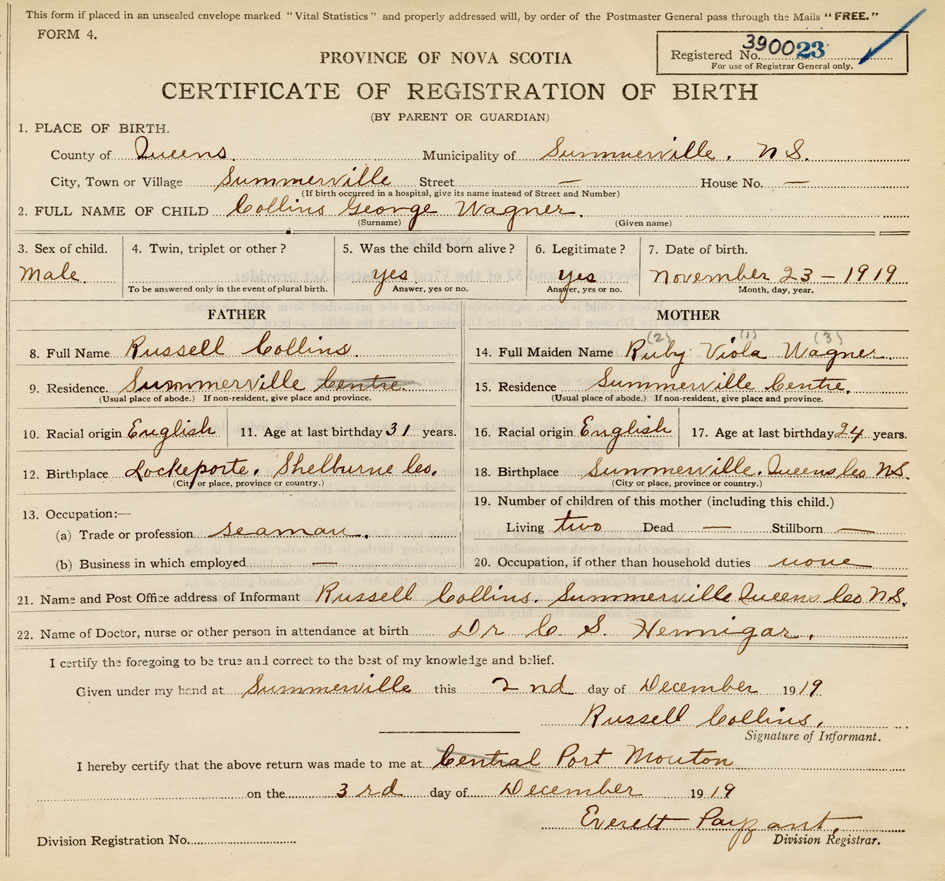 This form if placed in an unsealed envelope marked "Vital Statistics" and properly addressed will, by order of the Postmaster General pass through the Mails "FREE."
FORM 4.
Registered No. 390023
For use of Registrar General only.
PROVINCE OF NOVA SCOTIA
CERTIFICATE OF REGISTRATION OF BIRTH
(BY PARENT OR GUARDIAN)
1. PLACE OF BIRTH.
County of Queens. Municipality of Summerville. N S.
City, Town or Village Summerville Street — House No. —
(If birth occurred in a hospital, give its name instead of Street and Number)
2. FULL NAME OF CHILD Collins George Wagner.
(Surname) (Given name)
3. Sex of child. 4. Twin, triplet or other? 5. Was the child born alive? 6. Legitimate? 7. Date of birth.
Male. yes yes November 23 - 1919
To be answered only in the event of plural birth. Answer, yes or no. Answer, yes or no. Month, day, year.
FATHER MOTHER
(2) (1) (3)
8. Full Name Russell Collins. 14. Full Maiden Name Ruby Viola Wagner
9. Residence. Summerville Centre. 15. Residence Summerville Centre.
(Usual place of abode.) If non-resident, give place and province. (Usual place of abode.) If non-resident, give place and province.
10. Racial origin English 11. Age at last birthday 31 years. 16. Racial origin English 17. Age at last birthday 24 years.
12. Birthplace Lockeporte. Shelburne Co. 18. Birthplace Summerville. Queens Co N.S.
(City or place, province or country.) (City or place, province or country.)
13. Occupation:— 19. Number of children of this mother (including this child.)
(a) Trade or profession seaman. Living two Dead — Stillborn —
(b) Business in which employed — 20. Occupation, if other than household duties none
21. Name and Post Office address of Informant Russell Collins. Summerville Queens Co N.S.
22. Name of Doctor, nurse or other person in attendance at birth Dr C S. Hennigar.
I certify the foregoing to be true and correct to the best of my knowledge and belief.
Given under my hand at Summerville this 2nd day of December 1919
Russell Collins.
Signature of Informant.
I hereby certify that the above return was made to me at Central Port Mouton
on the 3rd day of December 1919
Everett
Division Registration No. Division Registrar.